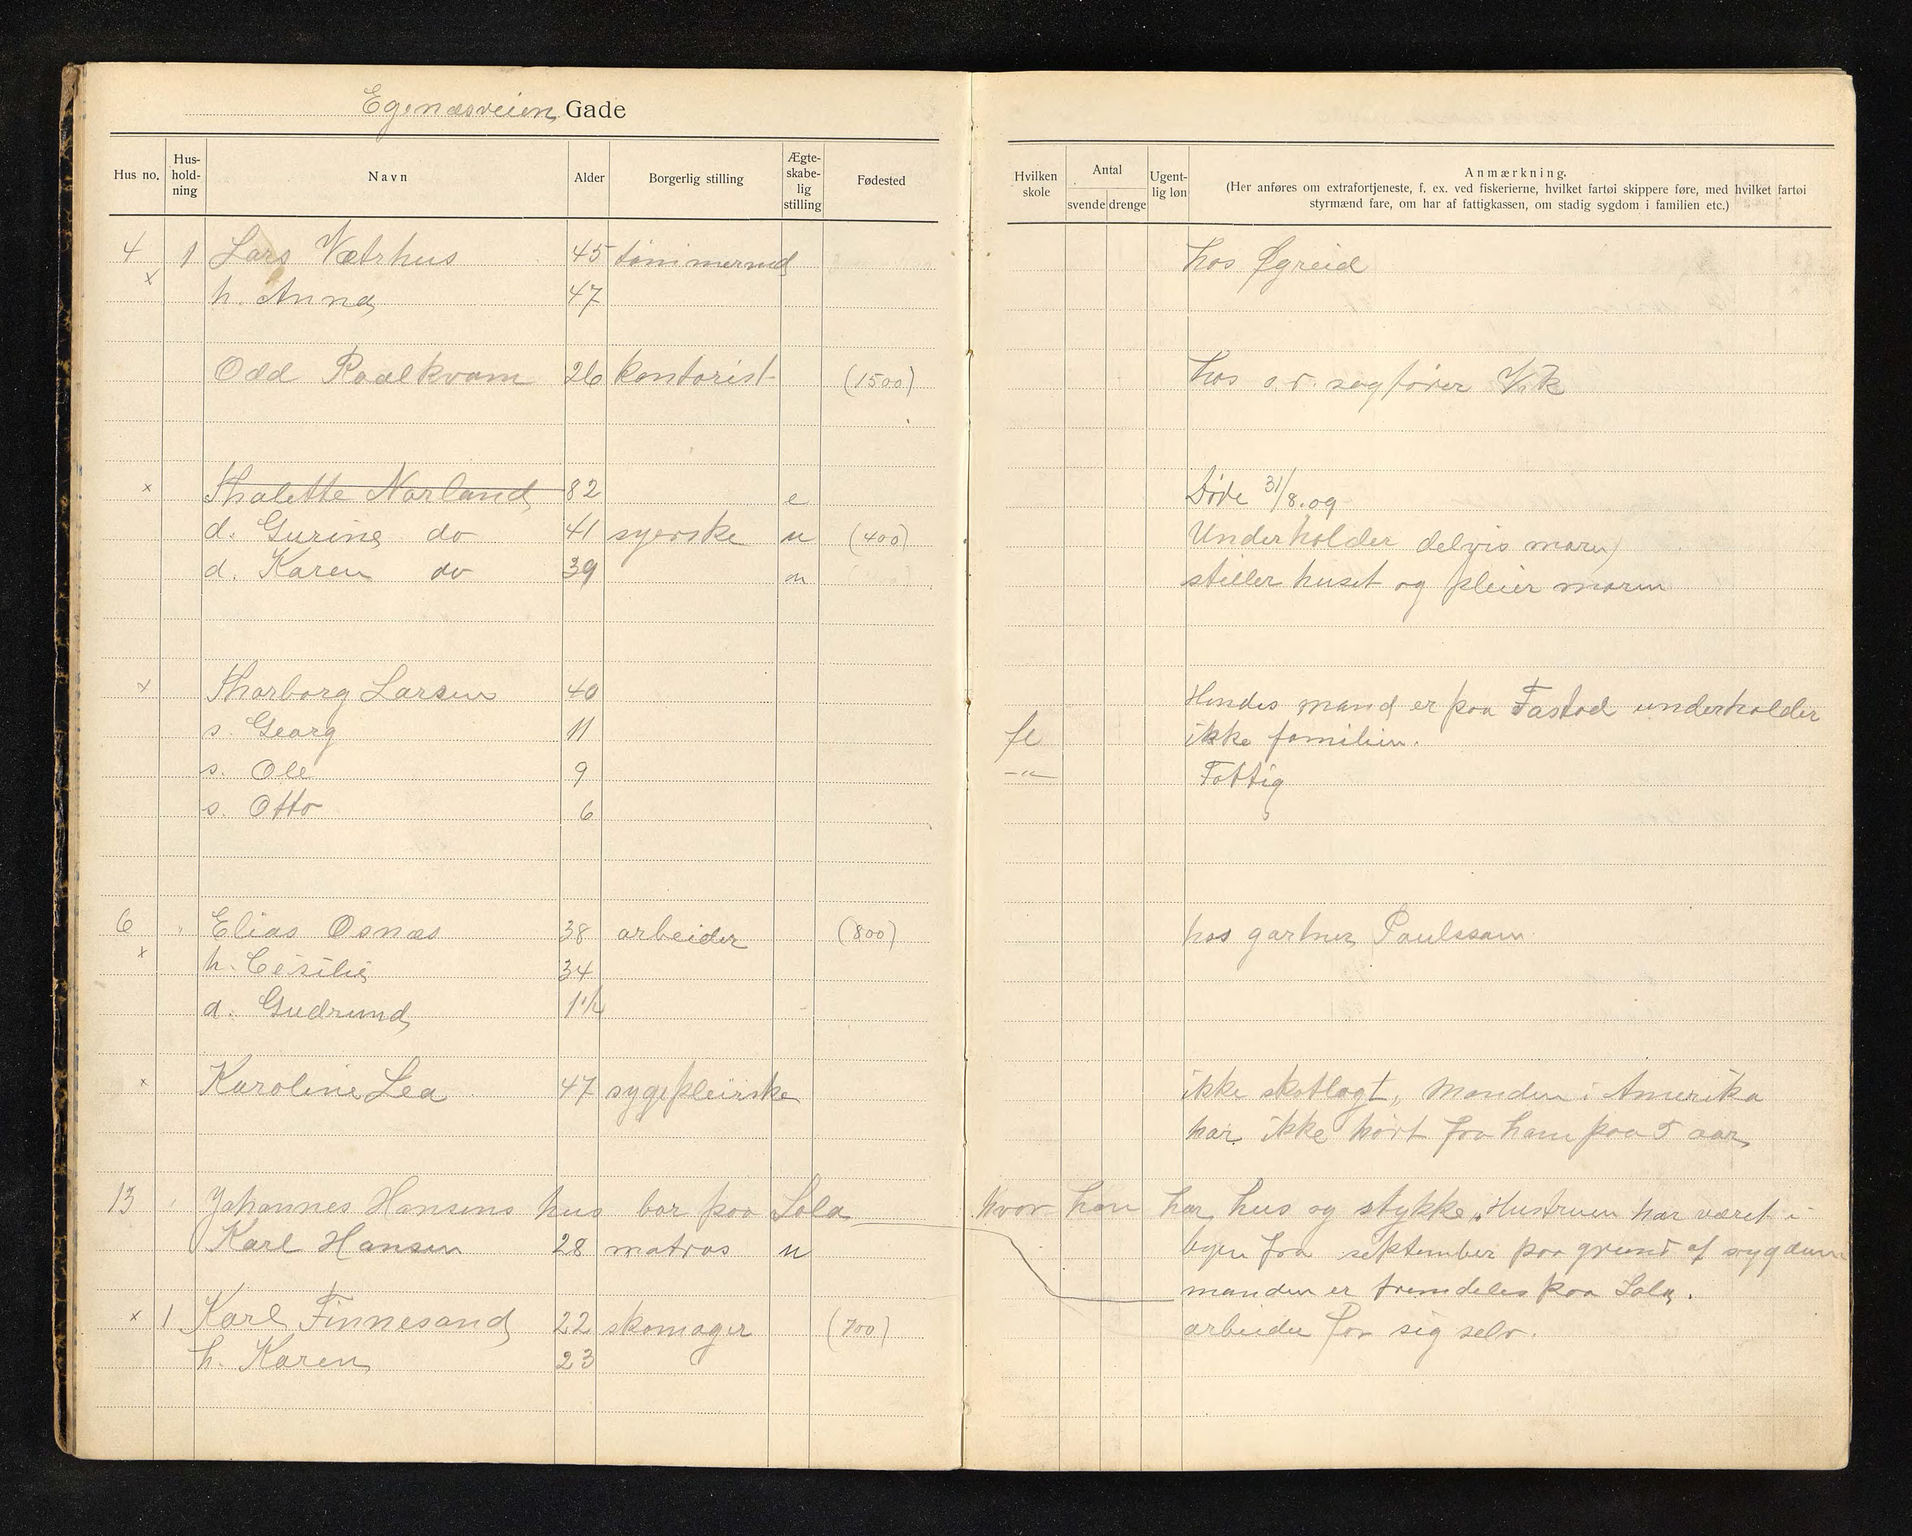 Egenæsveien Gade
Hus no. Hus-hold-ning Navn Alder Borgerlig stilling Ægte-skabe-lig stilling Fødested Hvilken skole Antal svende drenge Ugent-lig løn Anmærkning.
(Her anføres om extrafortjeneste, f. ex. ved fiskerierne, hvilket fartøi skippere føre, med hvilket fartøi
styrmænd fare, om har af fattigkassen, om stadig sygdom i familien etc.)
4 1 Lars Vætrhus 45 tømmermd hos Øgreid
x h. Anna 47
Odd Paalkvam 26 kontorist (1500) hos o.r. sagfører Vik
x Thalette Norland 82 e Døde 31/8.09
d. Gurine do 41 syerske u (400) Underholder delvis moren
d. Karen do 39 u steller huset og pleier moren
x Thorborg Larsen 40 Hendes mand er paa Tastad underholder
s. Georg 11 fl ikke familien.
s. Ole 9 -"- Fattig
s. Otto 6
6 " Elias Osnæs 38 arbeider (800) hos gartner Paulssen
x h. Cesilie 34
d. Gudrund 1 1/2
x Karoline Lea 47 sygepleierske ikke skatlagt, Manden i Amerika
har ikke hørt fra ham paa 5 aar
13 Johannes Hansens hus bor paa Sola hvor han har hus og stykke, Hustruen har været i
Karl Hansen 28 matros u byen fra september paa grund af sygdom
manden er fremdeles paa Sola.
x 1 Karl Finnesand 22 skomager (700) arbeider for sig selv.
h. Karen 23